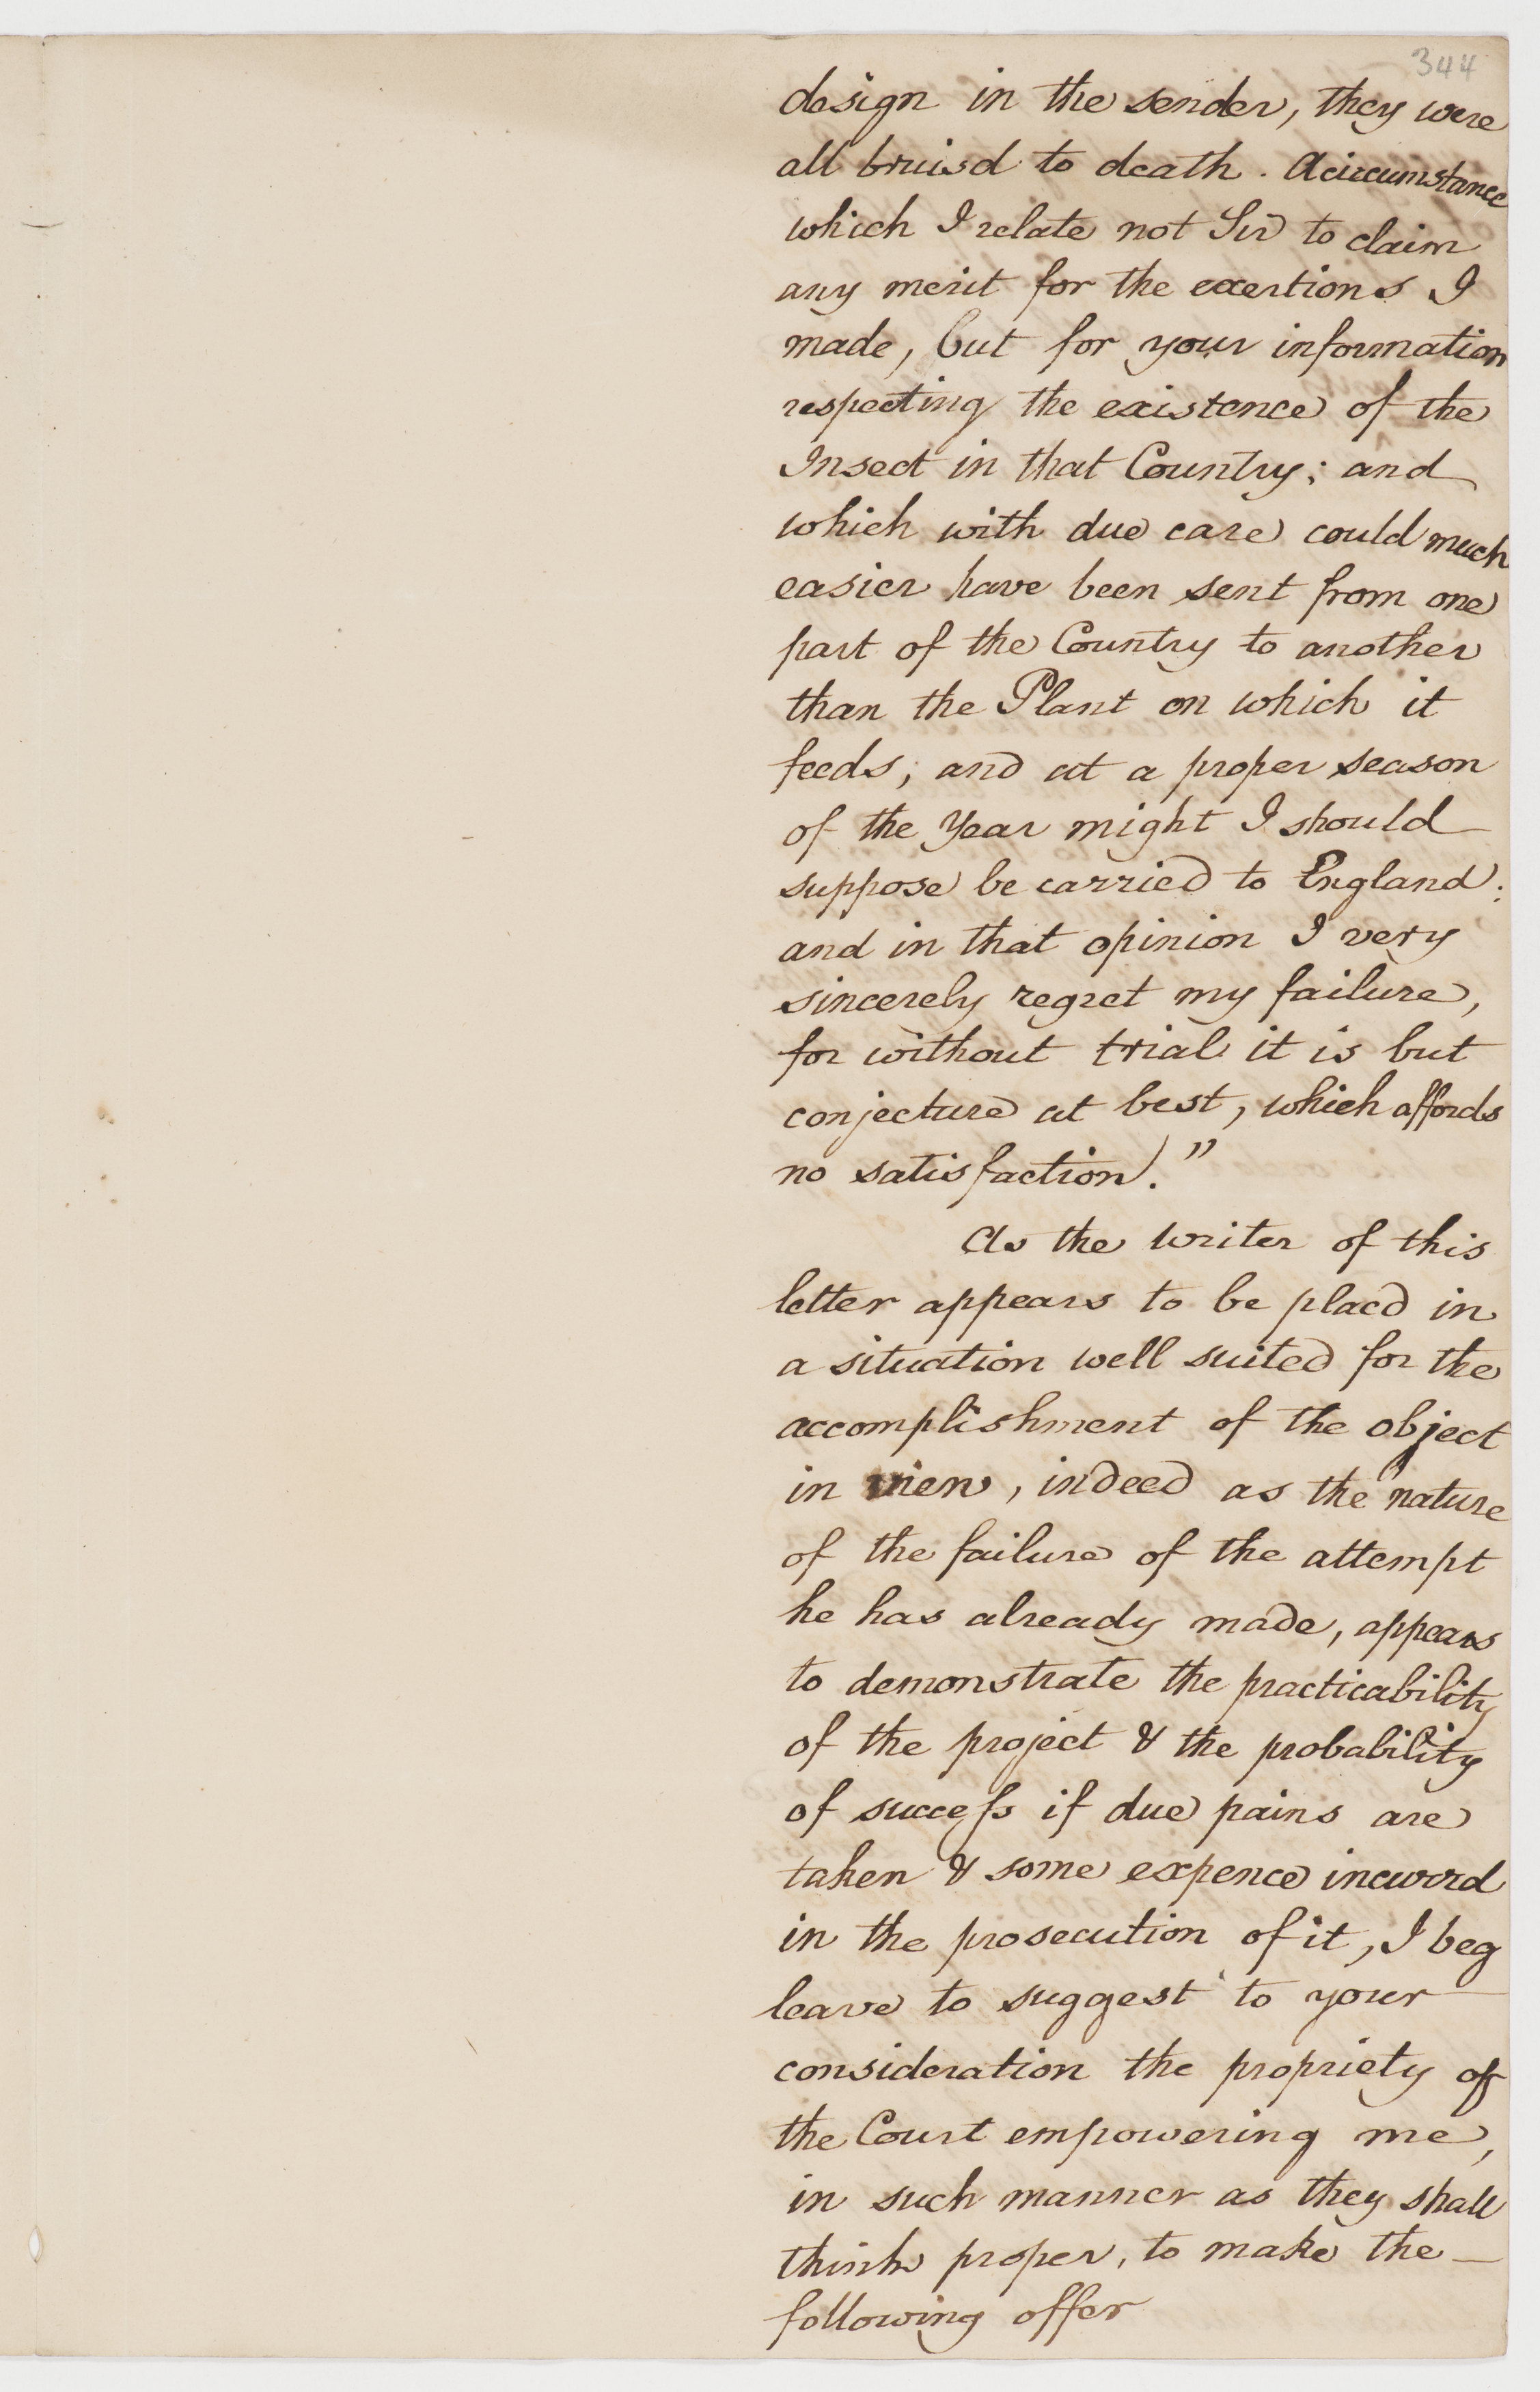 344
design in the sender, they were
all bruisd to death. A circumstance
which I relate not Sir to claim
any merit for the exertions I
made, but for your information
respecting the existence of the
Insect in that Country; and
which with due care could much
easier have been sent from one
part of the Country to another
than the Plant on which it
feeds; and at a proper season
of the Year might I should
suppose be carried to England:
and in that opinion I very
sincerely regret my failure,
for without trial it is but
conjecture at best, which affords
no satisfaction."
As the writer of this
letter appears to be placd in
a situation well suited for the
accomplishment of the object
in view, indeed as the nature
of the failure of the attempt
he has already made, appears
to demonstrate the practicability
of the project & the probability
of success if due pains are
taken & some expence incurrd
in the prosecution of it, I beg
leave to suggest to your
consideration the propriety of
the Court empowering me,
in such manner as they shall
think proper, to make the
following offer